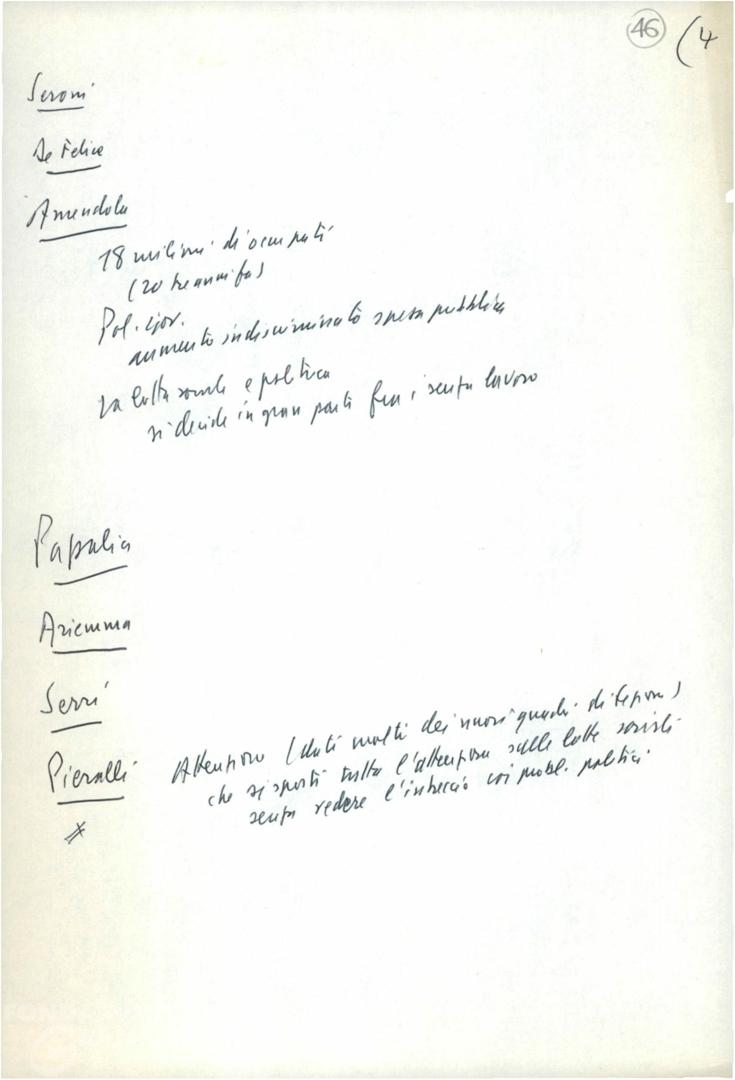 46 (4
Seroni
De Felice
Amendola
18 milioni di occupati
(20 tre anni fa)
Pol. Giov.
aumento indiscriminato spesa pubblica
La lotta sociale e politica
si decide in gran parte fra i senza lavoro
Papalia
Ariemma
Serri
Pieralli Attenzione (dati molti dei nuovi quadri di
che si sposti tutta l'attenzione sulle lotte
senza vedere l'intreccio coi probl. politici